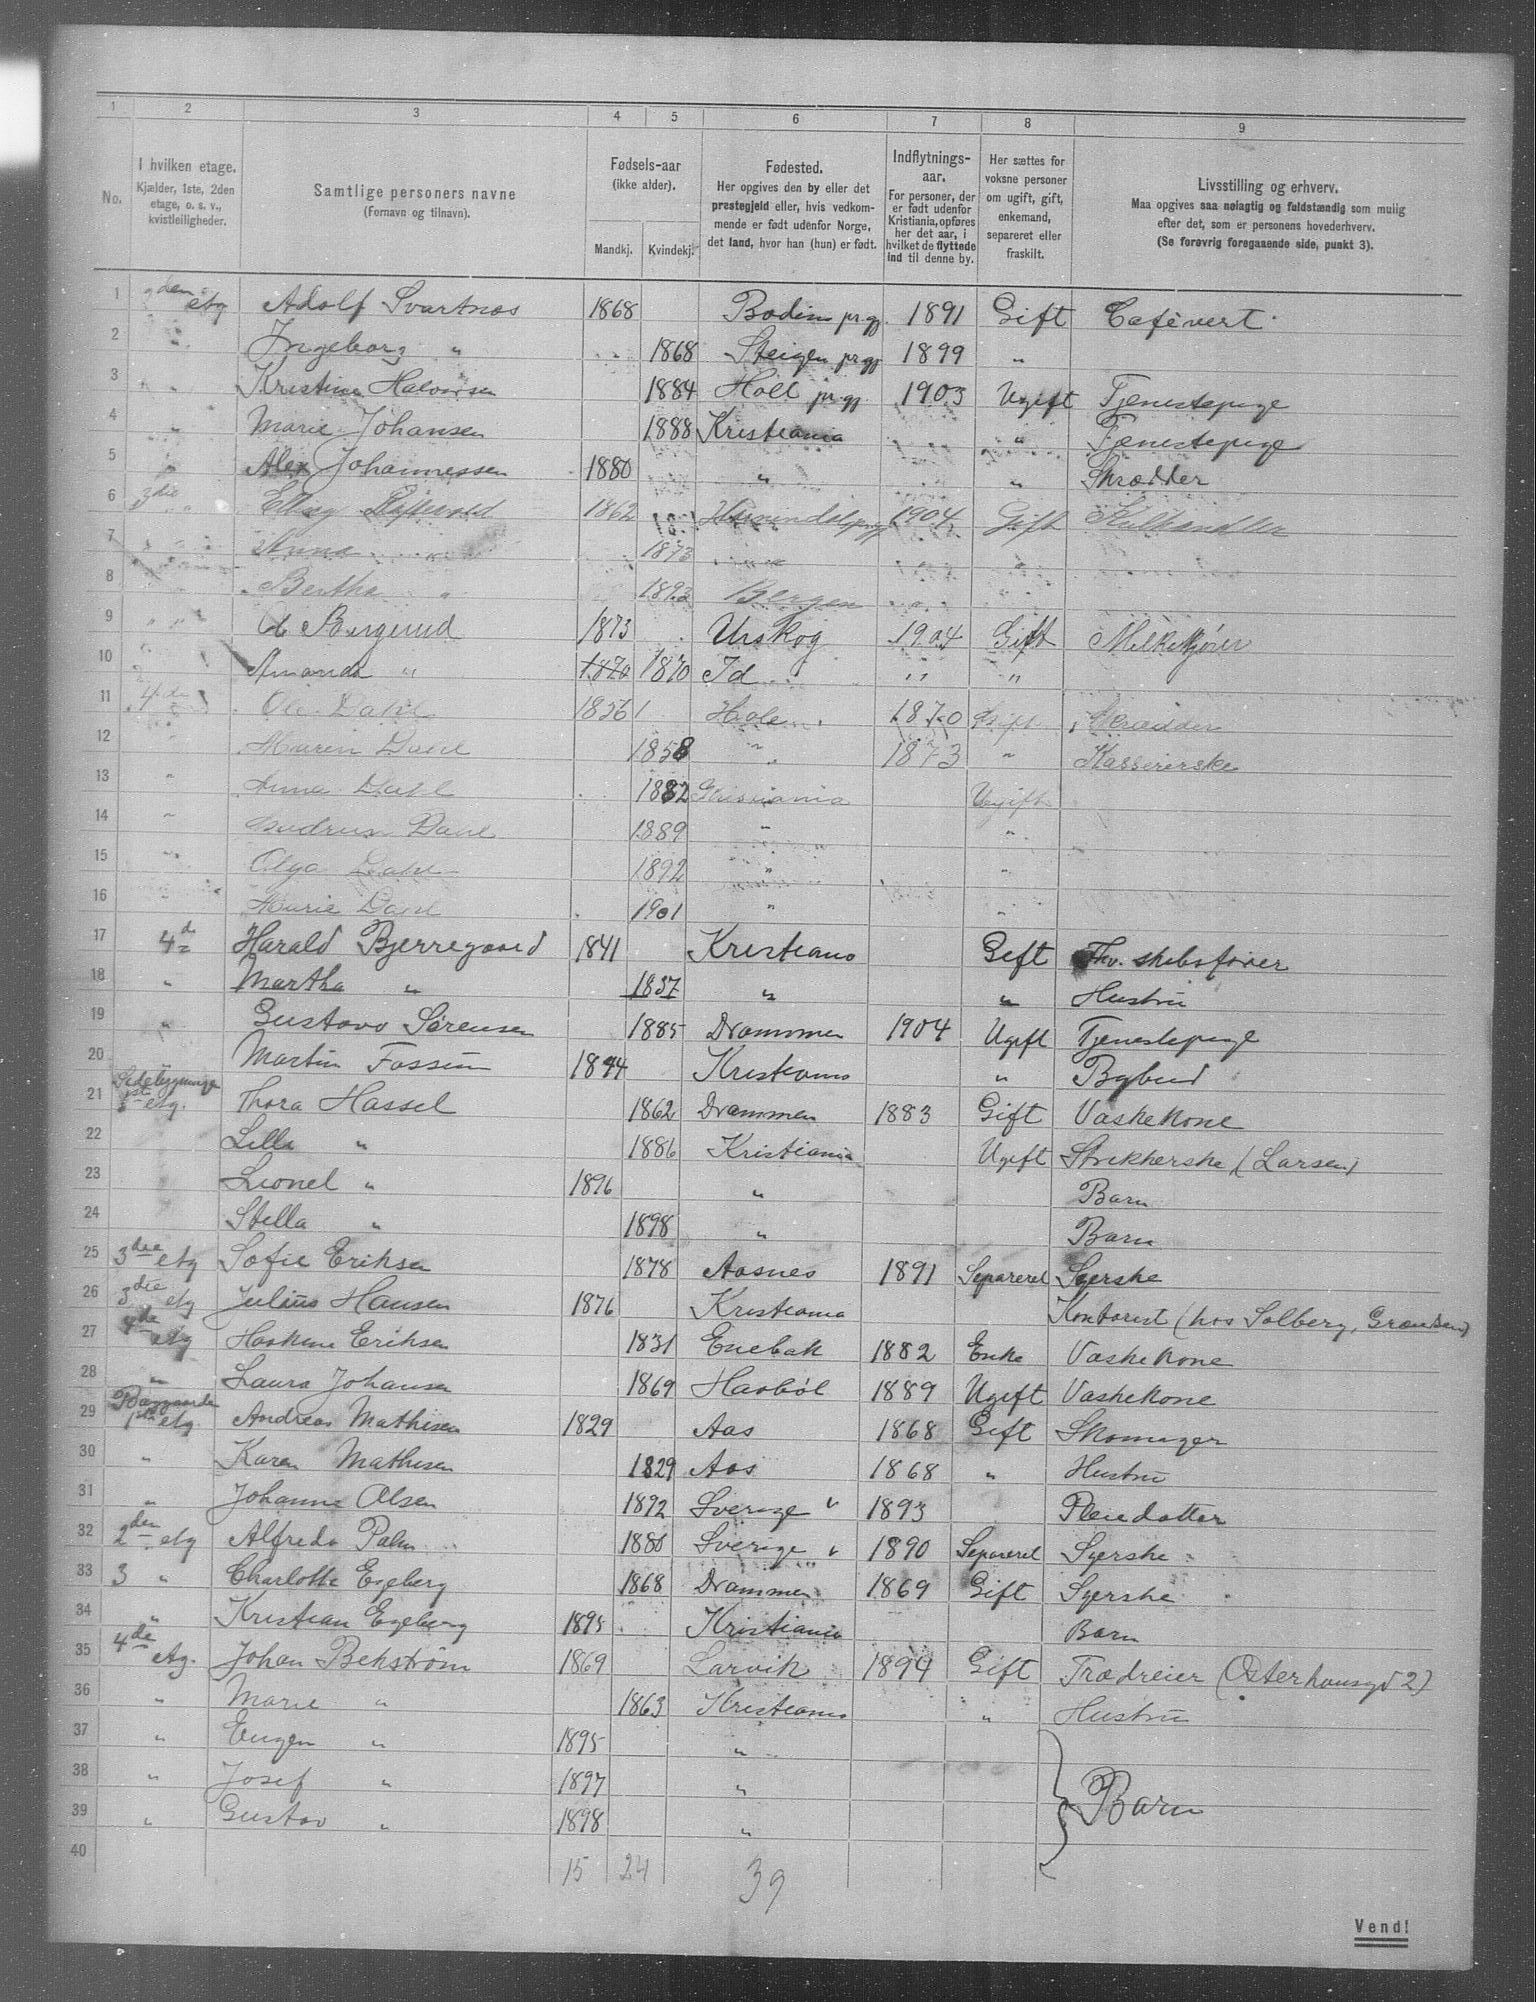 1 2 3 4 5 6 7 8 9
No. I hvilken etage. Kjælder, 1ste, 2den etage, o. s. v., kvistleiligheder. Samtlige personers navne (Fornavn og tilnavn). Fødsels-aar (ikke alder). Mandkj. Kvindekj. Fødested. Her opgives den by eller det prestegjeld eller, hvis vedkommende er født udenfor Norge, det land, hvor han (hun) er født. Indflytnings-aar. For personer, der er født udenfor Kristiania, opføres her det aar, i hvilket de flyttede ind til denne by. Her sættes for voksne personer om ugift, gift, enkemand, separeret eller fraskilt. Livsstilling og erhverv. Maa opgives saa nøiagtig og fuldstændig som mulig efter det, som er personens hovederhverv. (Se forøvrig foregaaende side, punkt 3).
1 2den etg Adolf Svartnæs 1868 Bodin prgj. 1891 Gift Cafévert
2 " Ingeborg " 1868 Steigen prgj 1899 "
3 " " Kristine Halvorsen 1884 Holl prgj. 1903 Ugift Tjenestepige
4 " Marie Johansen 1888 Kristiania " Tjenestepige
5 " Alex Johannessen 1880 " " Skrædder
6 3die " 1862 1904 Gift Kulhandler
7 " Anna " 1873 " "
8 Bertha " 1893 Bergen
9 " " Borgerud 1873 Urskog 1904 Gift Melkekjører
10 Amanda " 1870 1870 Id " "
11 4de Ole Dahl 1856 Hole 1870 Gift Skrædder
12 " Maren Dahl 1858 " 1873 " Kassiererske
13 " Anna Dahl 1882 Kristiania Ugift
14 " Gudrun Dahl 1889 " "
15 " Olga Dahl 1892 " "
16 " Marie Dahl 1901 " "
17 4d Harald Bjerregaard 1841 Kristiania Gift Fhv. skibsfører
18 " Martha " 1837 " " Hustru
19 " Gustava Sørensen 1885 Drammen 1904 Ugift Tjenestepige
20 " Martin Fossum 1844 Kristiania " Bybud
21 Sidebygninge 1ste etg. Thora Hassel 1862 Drammen 1883 Gift Vaskekone
22 Lilla " 1886 Kristiania Ugift Strikherske (Larsen)
23 Lionel " 1896 " Barn
24 Stella " 1898 " Barn
25 3die etg Sofie Eriksen 1878 Aasnes 1891 Separeret Syerske
26 3die etg Julius Hansen 1876 Kristiania Kontorist (hos Solberg, Grændsen)
27 4de etg Haakine Eriksen 1831 Enebak 1882 Enke Vaskekone
28 " Laura Johansen 1869 Haabøl 1889 Ugift Vaskekone
29 Baggaarden 1ste etg. Andreas Mathisen 1829 Aas 1868 Gift Skomager
30 " Karen Mathisen 1829 Aas 1868 " Hustru
31 " Johanne Olsen 1892 Sverige v 1893 Pleiedatter
32 2den etg Alfreda Palm 1880 Sverige v 1890 Separeret Syerske
33 3 " Charlotte Engeberg 1868 Drammen 1869 Gift Syerske
34 " Kristian Engeberg 1895 Kristiania Barn
35 4de Etg. Johan Bekstrøm 1869 Larvik 1894 Gift Trædreier (Osterhausgd 2)
36 " Marie " 1863 Kristiania " Hustru
37 " Eugen " 1895 "
38 " Josef " 1897 " Barn
39 " Gustav " 1898 "
40
15 24 39
Vend!